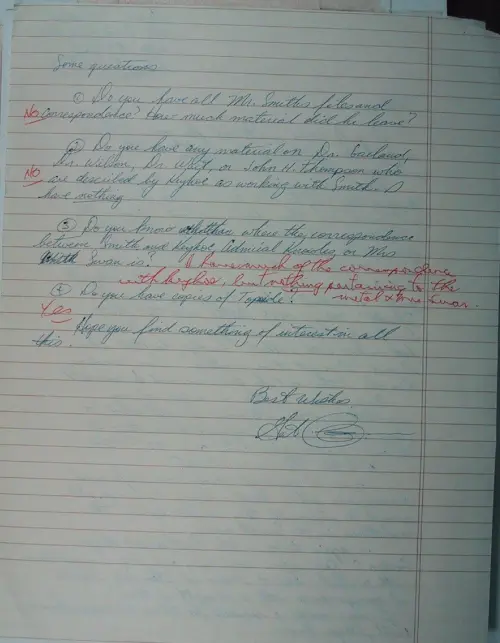 Some questions
① Do you have all Mr. Smith's files and
No correspondence? How much material did he leave?
② Do you have any material on Dr. Garland,
Mr. Wilson, Dr. Wolf, or John H. Thompson who
No are described by Keyhoe as working with Smith. I
have nothing
③ Do you know whether where the correspondence
between Smith and Keyhoe, Admiral Knowles or Mrs
Swan is? I have much of the correspondence
with Keyhoe, but nothing pertaining to the
④ Do you have copies of Topside? metal & Mrs. Swan.
Yes
Hope you find something of interest in all
this.
Best Wishes